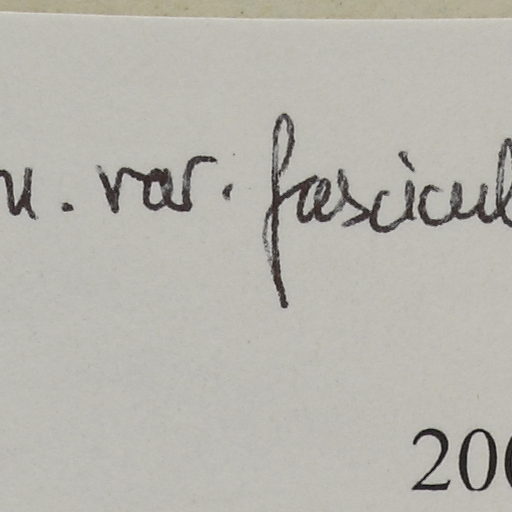 var. fascicul
200